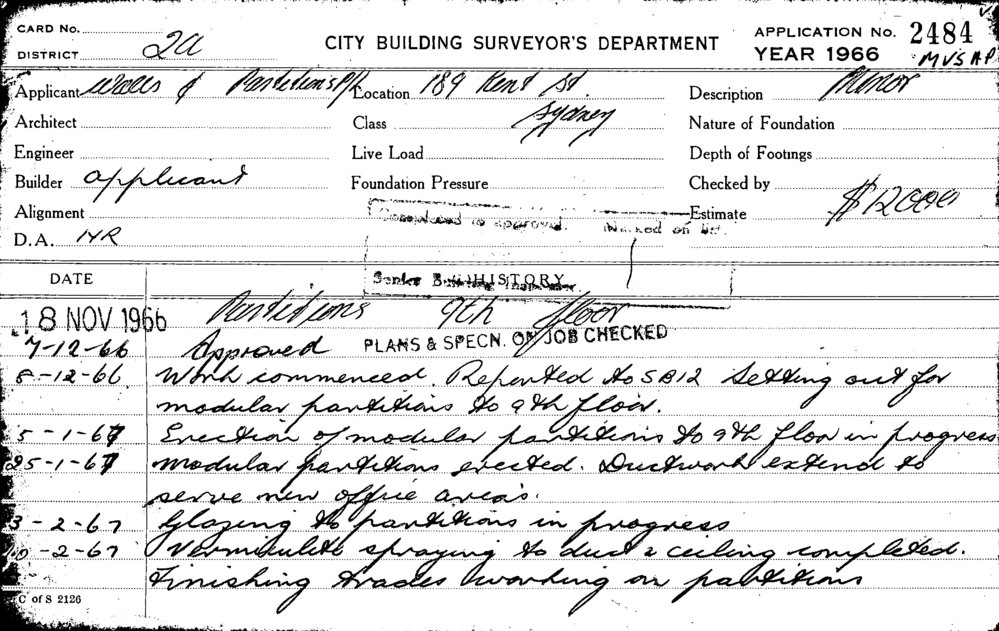 CARD No.
DISTRICT 2A
CITY BUILDING SURVEYOR'S DEPARTMENT
APPLICATION No. 2484
YEAR 1966 MVS HP
Applicant Walls & Partitions P/L Location 189 Kent St. Description Minor
Architect Class Sydney Nature of Foundation
Engineer Live Load Depth of Footings
Builder applicant Foundation Pressure Checked by
Alignment Completed as approved. Marked on list. Estimate $12000
D.A. NR
DATE Senior HISTORY
18 NOV 1966 Partitions 9th floor
PLANS & SPECN. ON JOB CHECKED
7-12-66 Approved
8-12-66 Work commenced. Reported to SB12 Setting out for
modular partitions to 9th floor.
5-1-67 Erection of modular partitions to 9th floor in progress
25-1-67 Modular partitions erected. Ductwork extend to
serve new office area's.
3-2-67 Glazing to partitions in progress
10-2-67 Vermiculite spraying to duct & ceiling completed.
Finishing trades working on partitions
C of S 2126